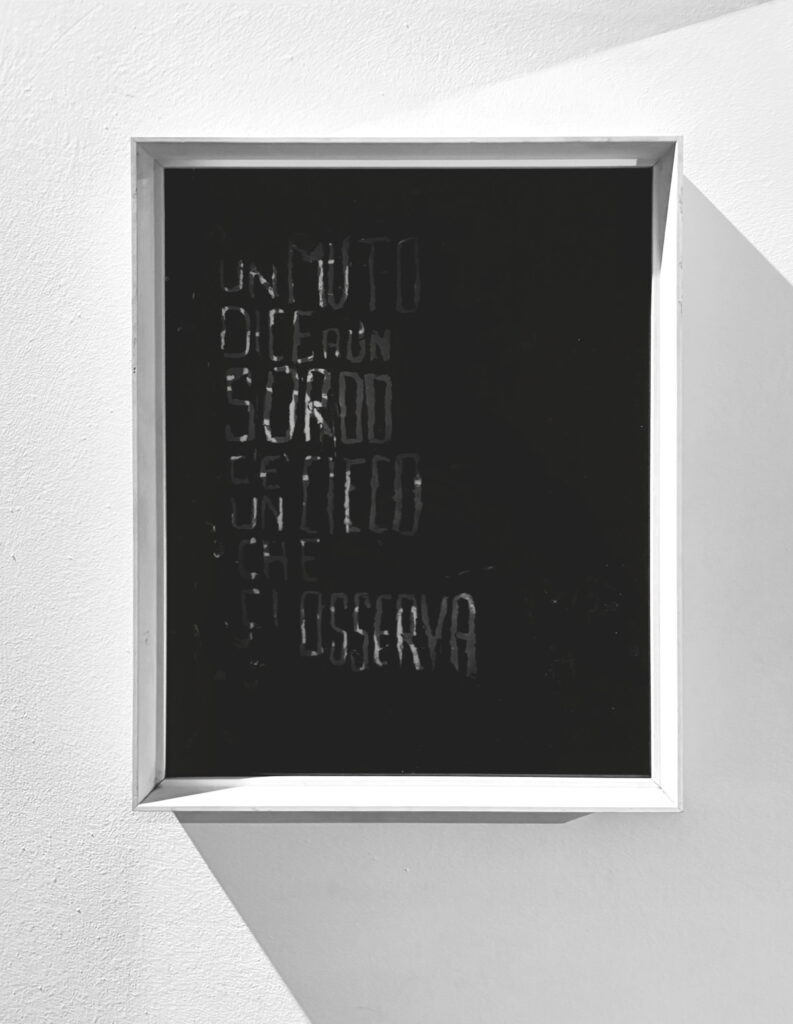 UN MUTO
DICE A UN
SORDO
C'È
UN CIECO
CHE
CI OSSERVA